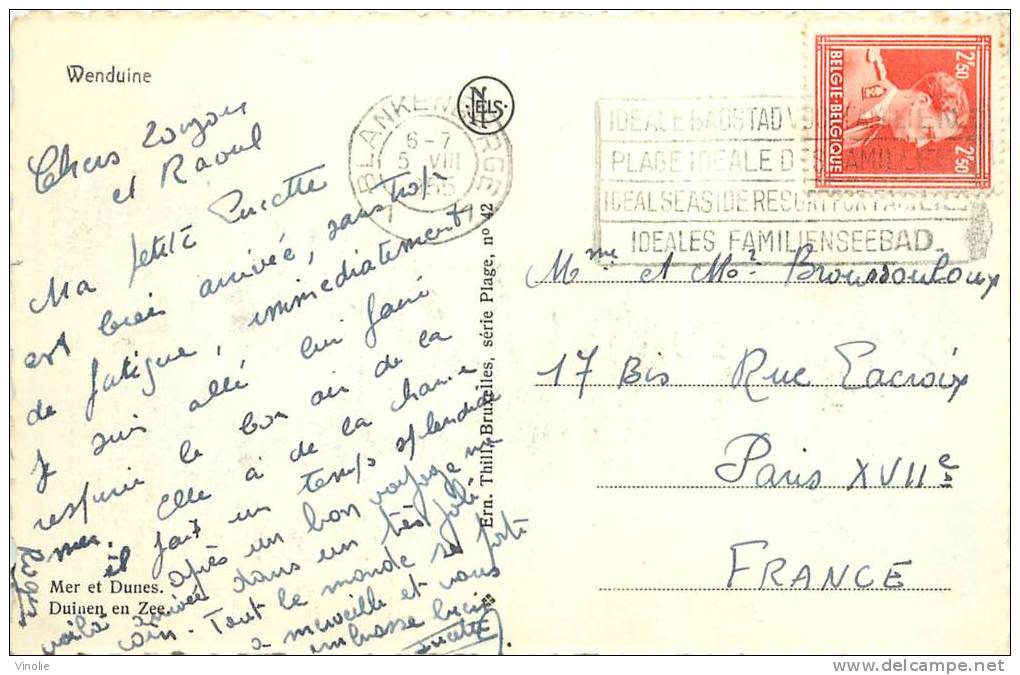 Wenduine
NELS
BLANKENBERGE
6-7
5 VIII
55
1 1
IDEALE BADSTAD VOOR FAMILIEN
PLAGE IDEALE DES FAMILLES
IDEAL SEASIDE RESORT FOR FAMILIES
IDEALES FAMILIENSEEBAD
BELGIE-BELGIQUE
2F50
2F50
Chers
et Raoul
Ma petite Lucette
est bien arrivée, sans trop
de fatigue, immédiatement
je suis allé lui faire
respirer le bon air de la
mer. elle a de la chance
il fait un temps splendide
Roger
après un bon voyage me
voilà arrivée dans un très joli
coin. Tout le monde se porte
a merveille et vous
embrasse bien
Lucette
Mer et Dunes.
Duinen en Zee.
Ern. Thill, Bruxelles, série Plage, n° 42
Mme et Mr Broussouloux
17 Bis Rue Lacroix
Paris XVIIe
FRANCE
Vinolie
delcampe.net